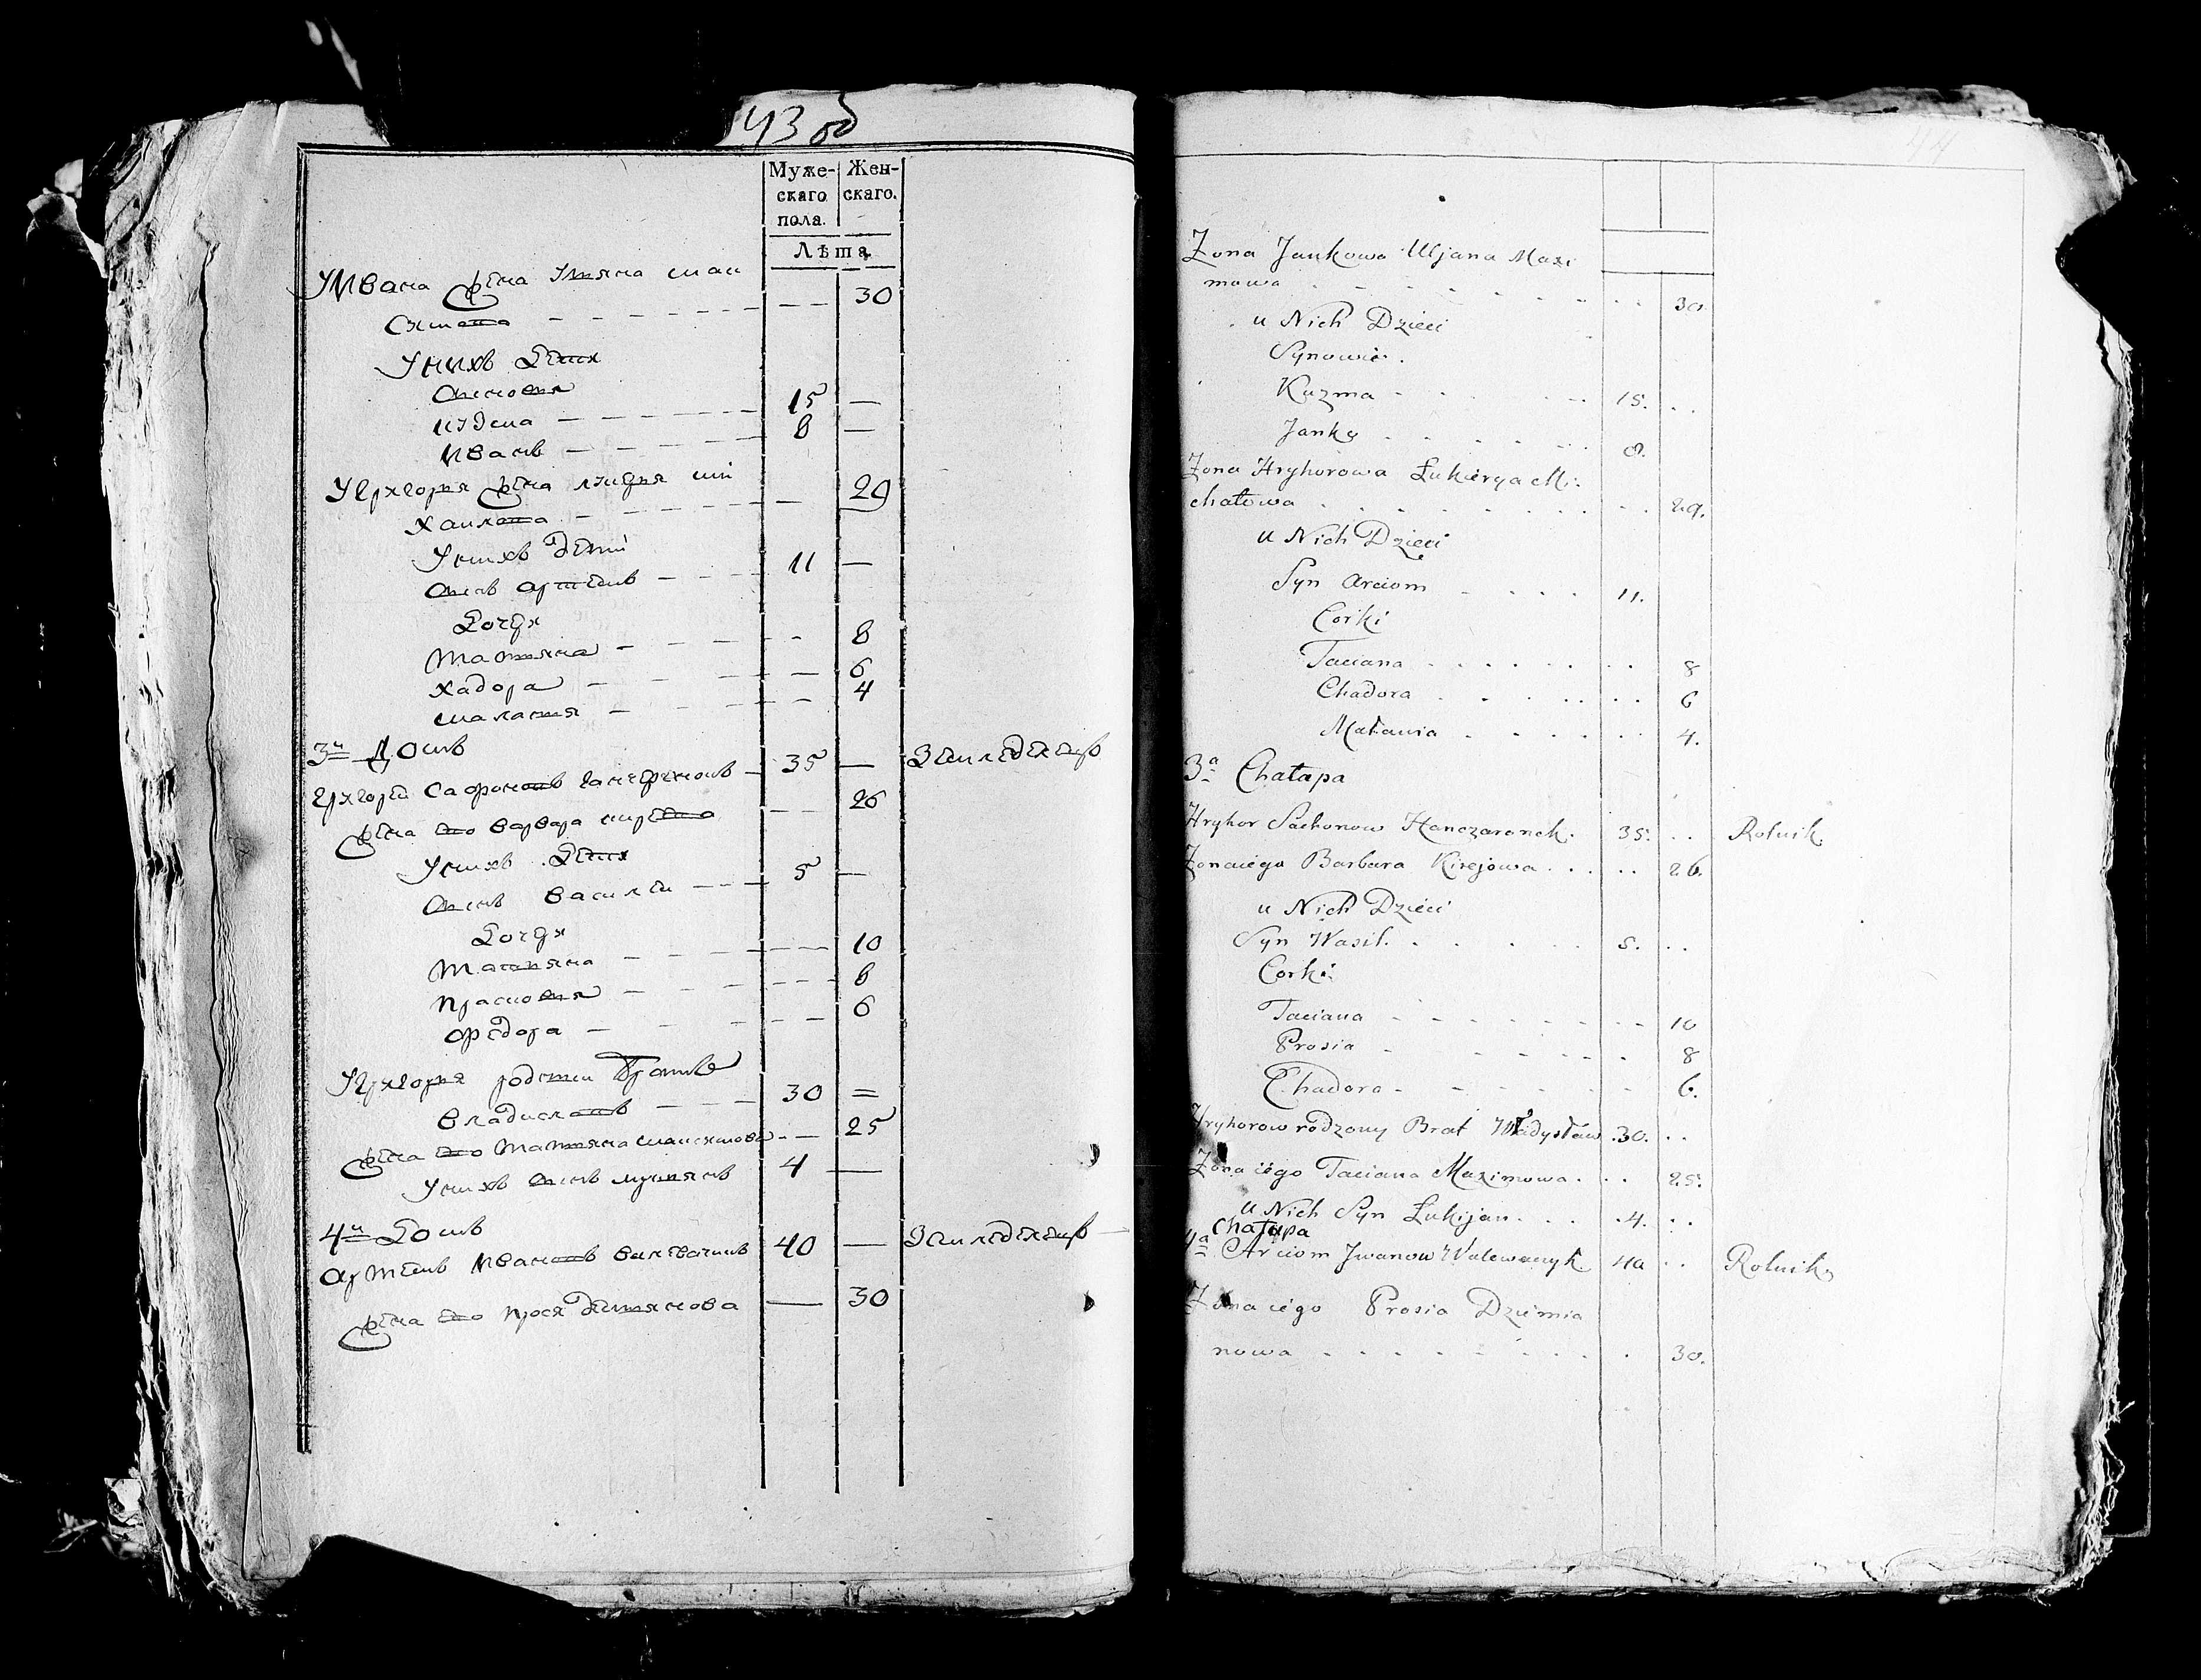 43 об
Муже-
скаго
пола.
Жен-
скаго.
Лѣта
У Ивана жена Уляна мак
симова 30
У нихъ дети
сыновья
кузма 15 —
иванъ 8 —
У григорія жена лукерія ми
хайлова — 29
У нихъ дети
сынъ артемъ 11 —
дочери
татяна 8
хадора — 6
маланя 4
3й Домъ
григорей сафоновъ ганчеренокъ 35 — Земледелецъ
жена ево варвара киреева 26
У нихъ дети
сынъ василей 5 —
дочери
татяна 10
прасковя 8
федора 6
У григорія родной братъ
владиславъ 30 =
жена ево татяна максимова 25
У нихъ сынъ лукянъ 4 —
4й Домъ
артемъ ивановъ 40 — Земледелецъ
жена ево прося демянова — 30
44
Żona Jankowa Uljana Maxi
mowa 30.
u Nich Dzieci
Synowie.
Kuzma 15.
Janko 8.
Żona Hryhorowa Łukierya Mi:
chałowa 29.
u Nich Dzieci
Syn Arciom 11.
Corki
Taciana 8
Chadora 6
Małania 4.
3a Chałupa
Hryhor Sachonow Hanczaronek. 35. Rolnik.
Żona iego Barbara Kirejowa 26.
u Nich Dzieci
Syn Wasil. 5.
Corki
Taciana 10
Prosia 8
Chadora 6.
Hryhorow rodzony Brat Władysław 30.
Żona iego Taciana Maximowa 25.
u Nich Syn Łukijan 4.
4a Chałupa
Arciom Jwanow Walewaczyk. 40 Rolnik.
Żona iego Prosia Dziemia
nowa 30.